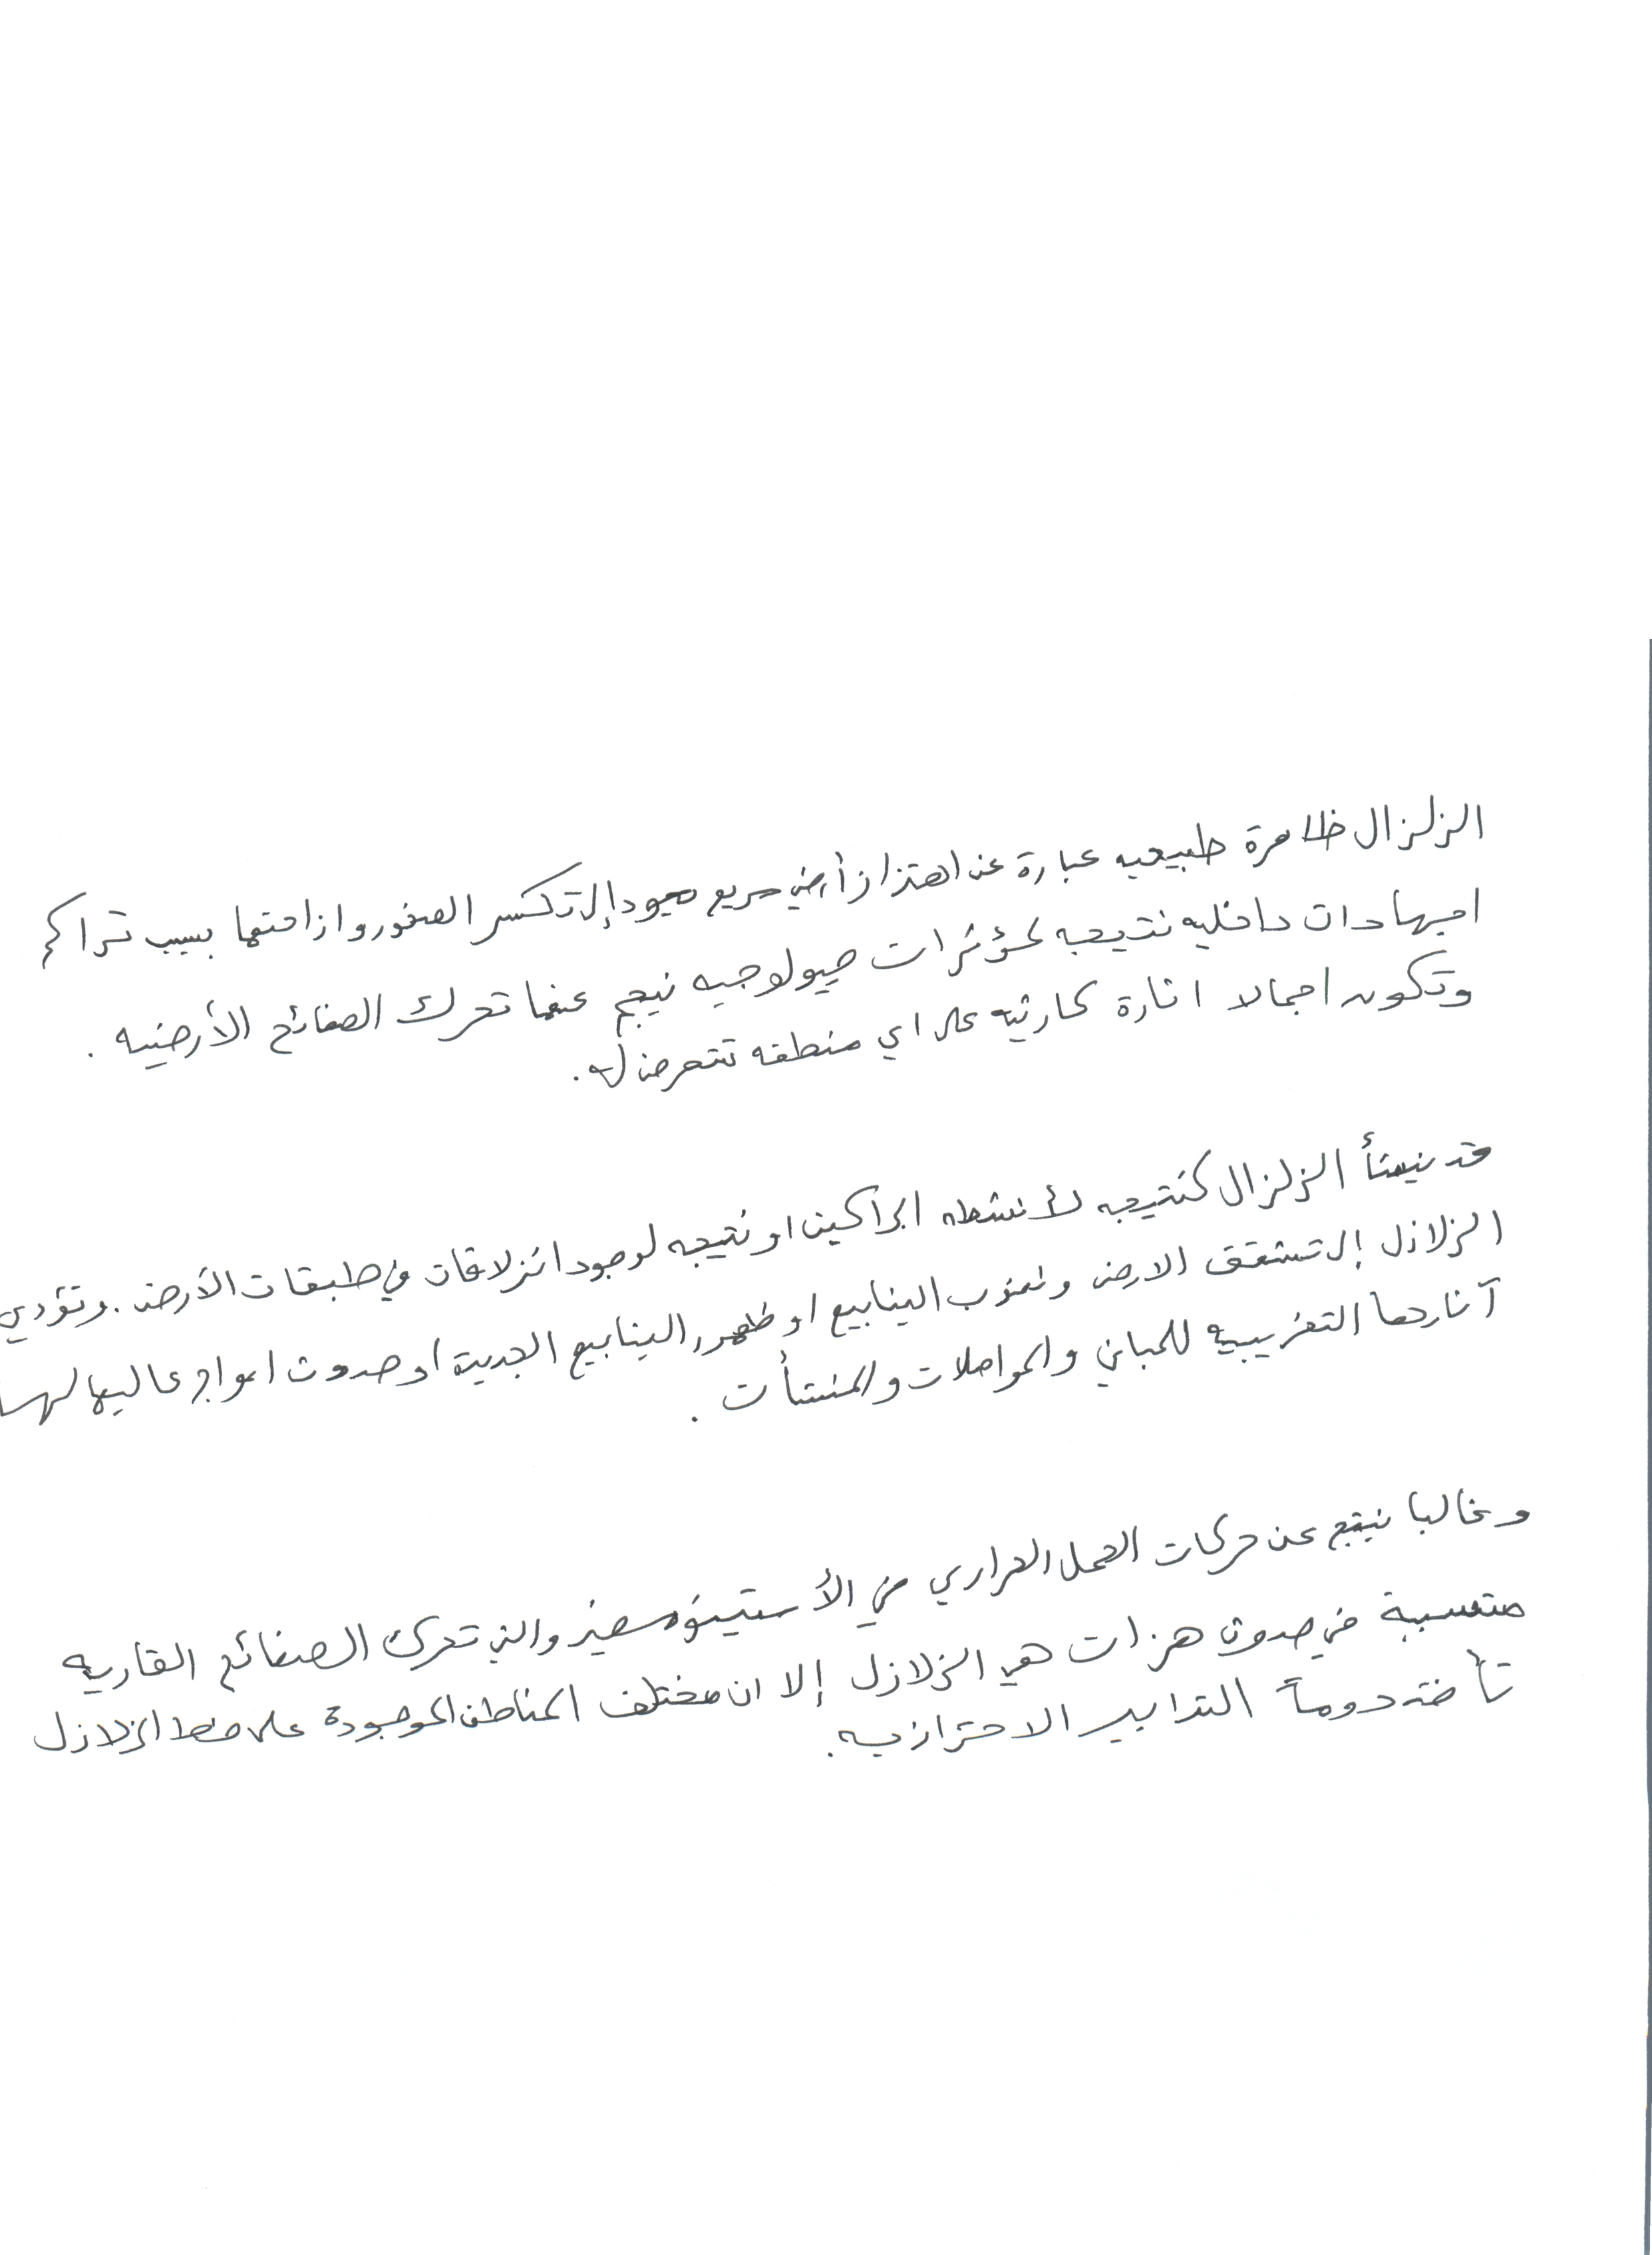 الزلزال ظاهرة طبيعيه عبارة عن اهتزاز أرضي سريع يعود إلى تكسر الصخور وازاحتها بسبب تراكم
اجهادات داخليه نتيجه لمؤثرات جيولوجيه ينجم عنها تحرك الصفائح الأرضيه .
وتكون اجمالا اثارة كارثيه على اي منطقه تتعرض له .
قد ينشأ الزلزال كنتيجه لأنشطه البراكين او نتيجه لوجود انزلاقات في طبقات الأرض . وتؤدي
الزلازل إلى تشقق الارض ونضوب الينابيع او ظهور الينابيع الجديدة او حدوث امواج عاليها
آثارها التخريبيه للمباني والمواصلات والمنشأت .
وغالبا ينتج عن حركات الحمل الحراري في الأستينوسفير والتي تحرك الصفائح القاريه
متسببة في حدوث هزات هي الزلازل إلا ان مختلف المناطق الموجودة على خط الزلازل
تأخذ دوماً التدابير الاحترازيه .